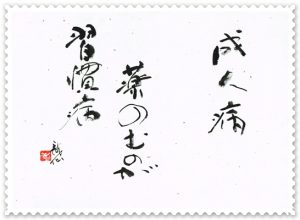 成人病
薬のむのが
習慣病